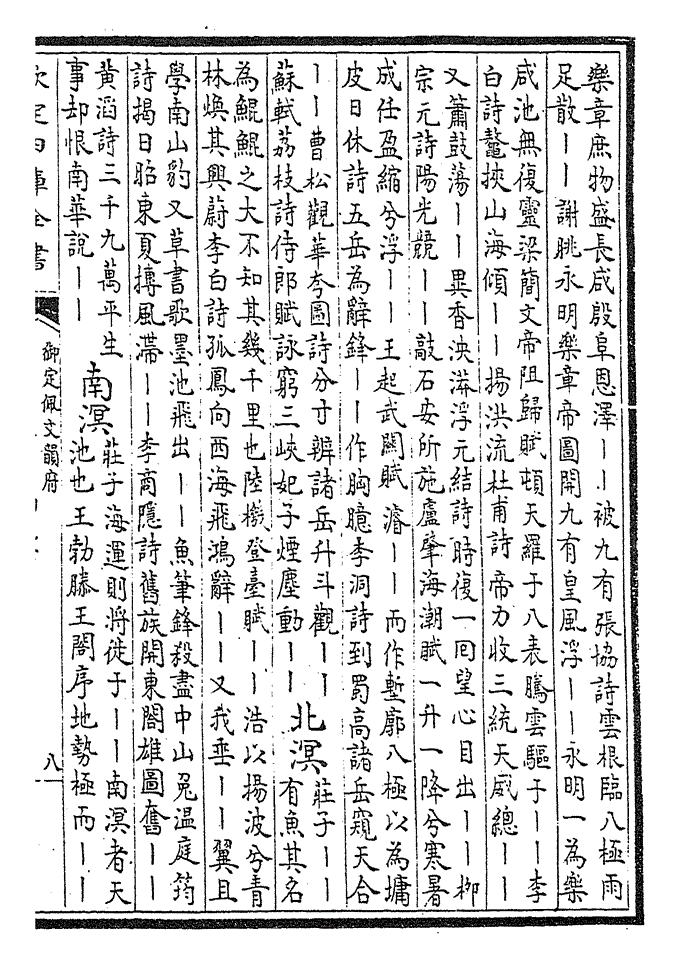 樂章庶物盛長咸殷阜恩澤丨丨被九有張協詩雲根臨八極雨
足散丨丨謝朓永明樂章帝圖開九有皇風浮丨丨永明一為樂
咸池無復靈梁簡文帝阻歸賦頓天羅于八表騰雲驅于丨丨李
白詩鼇挾山海傾丨丨揚洪流杜甫詩帝力收三統天威總丨丨
又簫鼓蕩丨丨異香泱漭浮元結詩時復一回望心目出丨丨柳
宗元詩陽光競丨丨敲石安所施盧肇海潮賦一升一降兮寒暑
成任盈縮兮浮丨丨王起武關賦濬丨丨而作塹廓八極以為墉
皮日休詩五岳為辭鋒丨丨作胸臆李洞詩到蜀高諸岳窺天合
丨丨曹松觀華夸圖詩分寸辨諸岳升斗觀丨丨
蘇軾荔枝詩侍郎賦詠窮三峽妃子煙塵動丨丨
北溟
莊子丨丨
有魚其名
為鯤鯤之大不知其幾千里也陸機登臺賦丨丨浩以揚波兮青
林煥其興蔚李白詩孤鳳向西海飛鴻辭丨丨又我垂丨丨翼且
學南山豹又草書歌墨池飛出丨丨魚筆鋒殺盡中山兔温庭筠
詩揭日昭東夏摶風滯丨丨李商隱詩舊族開東閤雄圖奮丨丨
黄滔詩三千九萬平生
事却恨南華說丨丨
南溟
莊子海運則將徙于丨丨南溟者天
池也王勃滕王閣序地勢極而丨丨
欽定四庫全書
御定佩文韻府
八